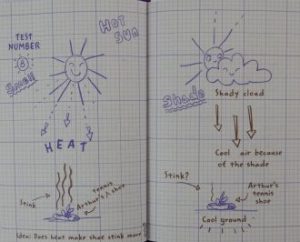 TEST
NUMBER
8
Smell
HOT
SUN
HEAT
Stink
Arthur's tennis shoe
Idea: Does heat make shoe stink more?
Shade
Shady cloud
Cool air because
of the shade
Stink?
Arthur's
tennis
shoe
Cool ground